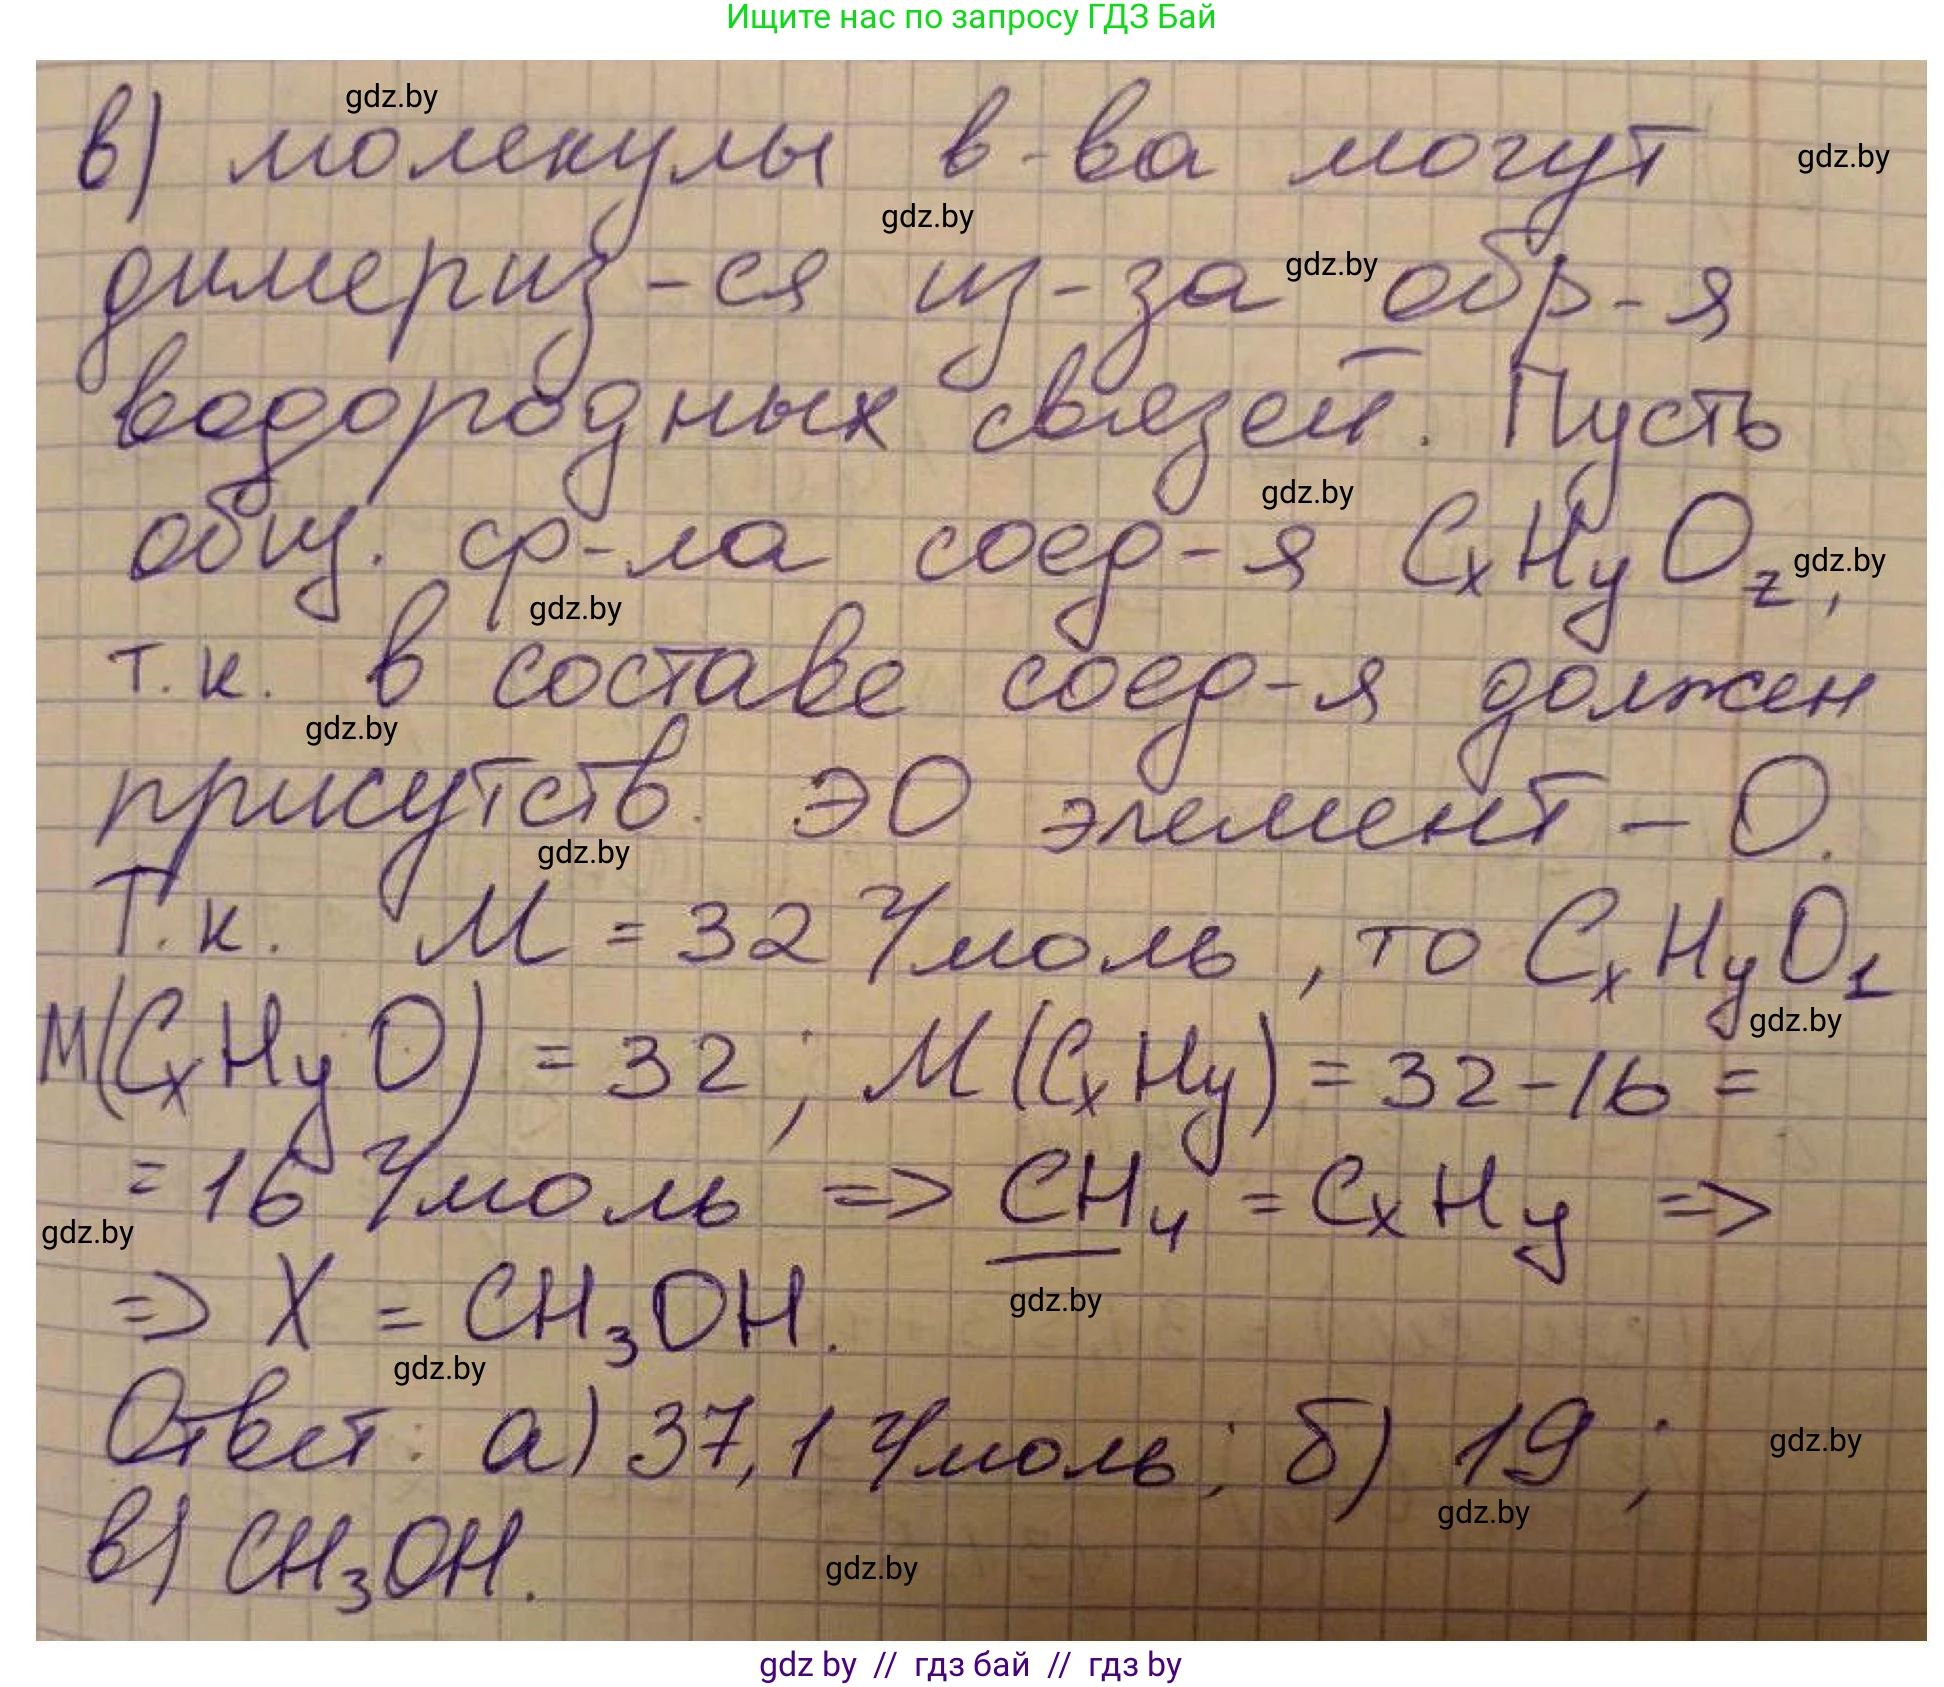 Ищите нас по запросу ГДЗ Бай
gdz.by
в) молекулы в-ва могут
gdz.by
gdz.by
димериз-ся из-за обр-я
gdz.by
водородных связей. Пусть
gdz.by
общ. ф-ла соед-я CₓHᵧO_z,
gdz.by
gdz.by
т.к. в составе соед-я должен
gdz.by
присутств. ЭО элемент – О.
gdz.by
Т.к. M = 32 г/моль, то CₓHᵧO₁
gdz.by
M(CₓHᵧO) = 32; M(CₓHᵧ) = 32-16 =
= 16 г/моль => CH₄ = CₓHᵧ =>
gdz.by
gdz.by
=> X = CH₃OH.
gdz.by
Ответ: а) 37,1 г/моль; б) 19;
gdz.by
gdz.by
в) CH₃OH.
gdz.by
gdz by // гдз бай // гдз by